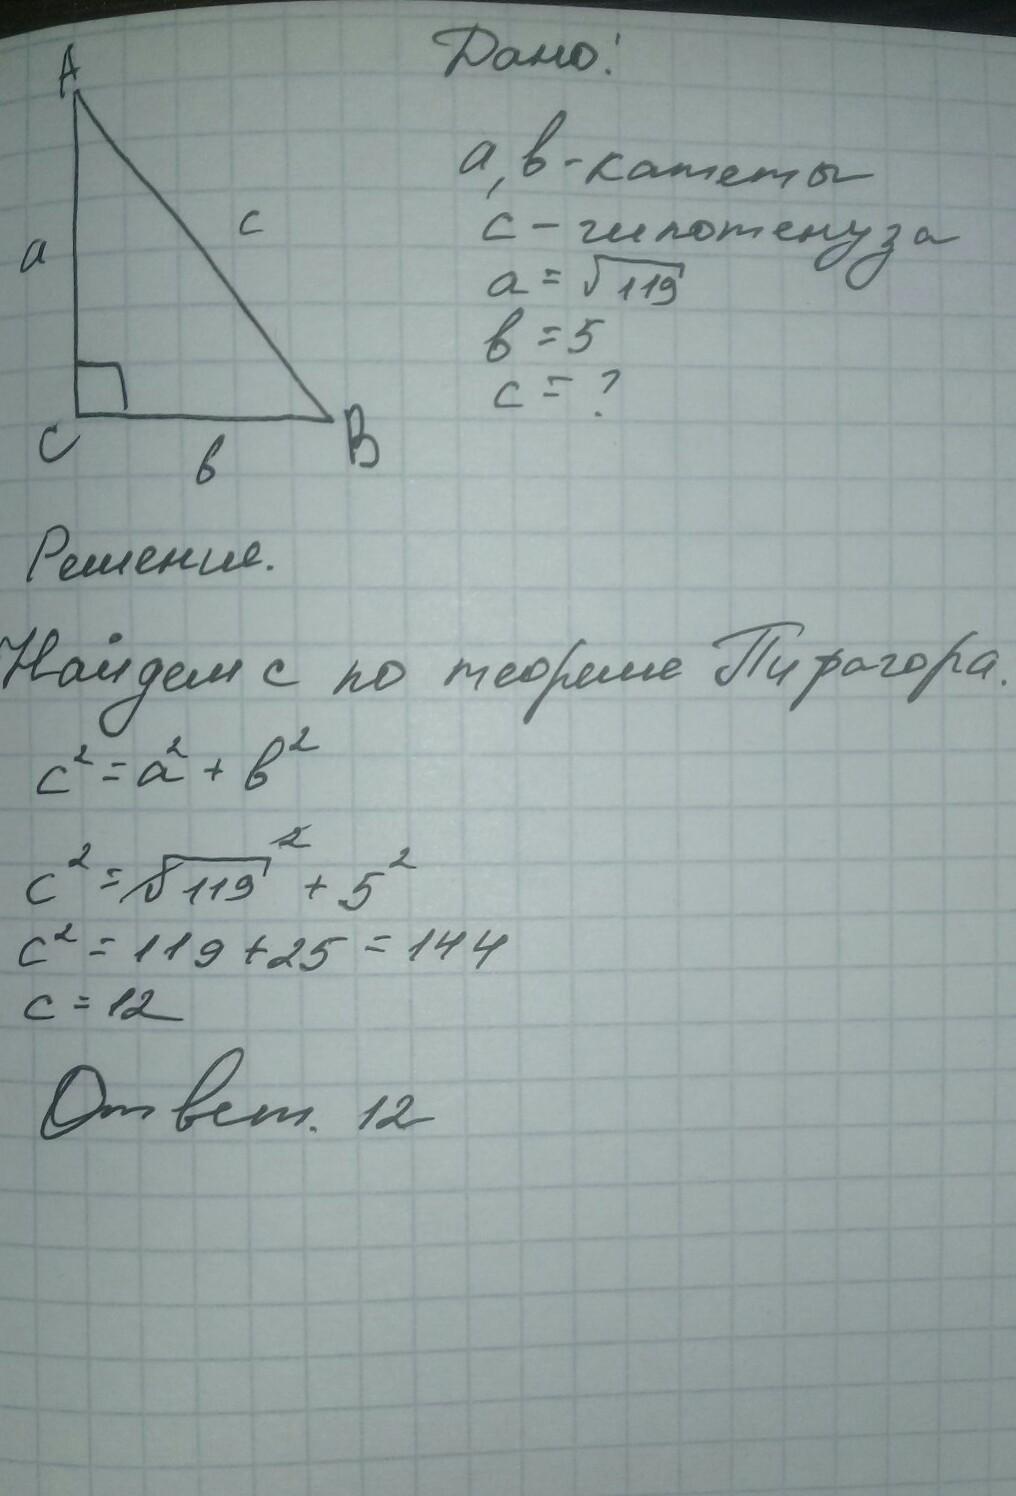 A
Дано:
a, b - катеты
c - гипотенуза
a = √119
b = 5
c = ?
a
c
C
b
B
Решение.
Найдем c по теореме Пифагора.
c² = a² + b²
c² = √119² + 5²
c² = 119 + 25 = 144
c = 12
Ответ. 12